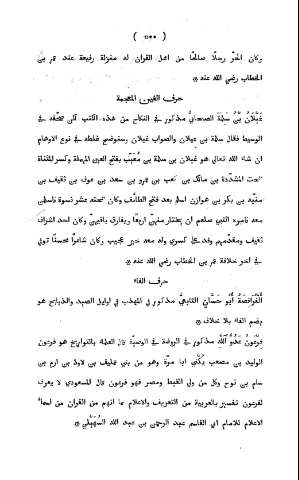 ( ٥٠٠ )
وكان الحر رجلا صالحا من اهل القران له منزلة رفيعة عند عمر بن
الخطاب رضي الله عنه ۞
حرف الغين المعجمة
غَيْلَانُ بْنُ سَلَمَةَ الصحابي مذكور في النكاح من هذه الكتب لكن صحفه في
الوسيط فقال سلمة بن غيلان والصواب غيلان وسنوضح غلطه في نوع الاوهام
ان شاء الله تعالى هو غيلان بن سلمة بن مُعَتِّب بفتح العين المهملة وكسر المثناة
تحت المشددة بن مالك بن كعب بن عمرو بن سعد بن عوف بن ثقيف بن
منبه بن بكر بن هوازن اسلم بعد فتح الطائف وكان تحته عشر نسوة فاسلمن
معه فامره النبي صلعم ان يختار منهن اربعا ويفارق باقيهن وكان احد اشراف
ثقيف ومقدميهم وفد على كسرى وله معه خبر عجيب وكان شاعرا محسنا توفي
في اخر خلافة عمر بن الخطاب رضي الله عنه ۞
حرف الفاء
الفَرَافِصَةُ أبو حَسَّانَ التابعي مذكور في المهذب في اوايل الصيد والذبايح هو
بضم الفاء بلا خلاف ۞
فِرْعَوْنُ عَدُوُّ اللّٰهِ مذكور في الروضة في الوصية قال العلماء بالتواريخ هو فرعون
الوليد بن مصعب يكنى ابا مرة وهو من بني عمليف بن لاوذ بن ارم بن
سام بن نوح وكل من ولي القبط ومصر فهو فرعون قال المسعودي لا يعرف
لفرعون تفسير بالعربية من التعريف والاعلام بما ابهم من القران من اسماء
الاعلام للامام ابي القاسم عبد الرحمن بن عبد الله السُّهَيْلي ۞